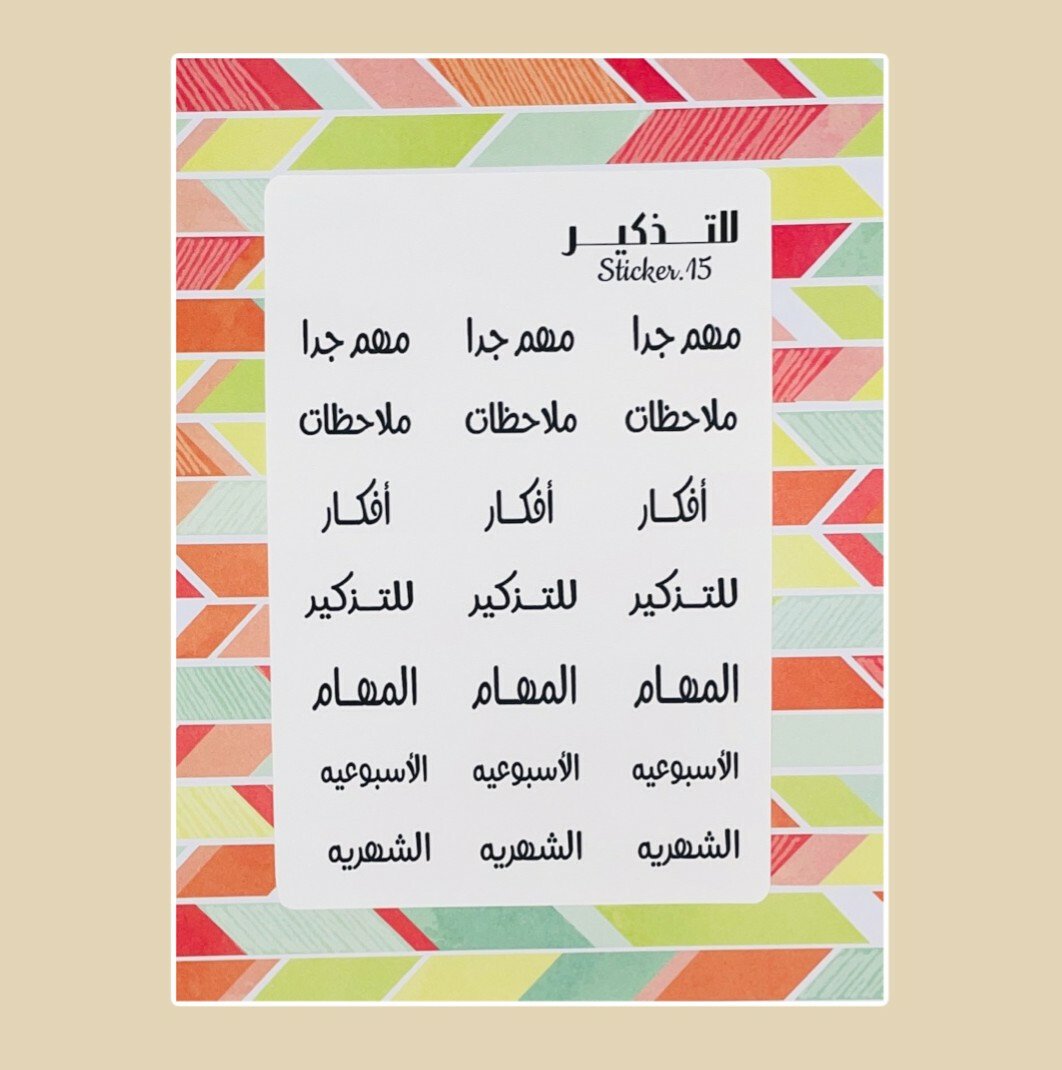 للتـــذكيـــر
Sticker.15
مهم جدا مهم جدا مهم جدا
ملاحظات ملاحظات ملاحظات
أفكــار أفكــار أفكــار
للتــزكير للتــزكير للتــزكير
المهــام المهــام المهــام
الأسبوعيه الأسبوعيه الأسبوعيه
الشهريه الشهريه الشهريه